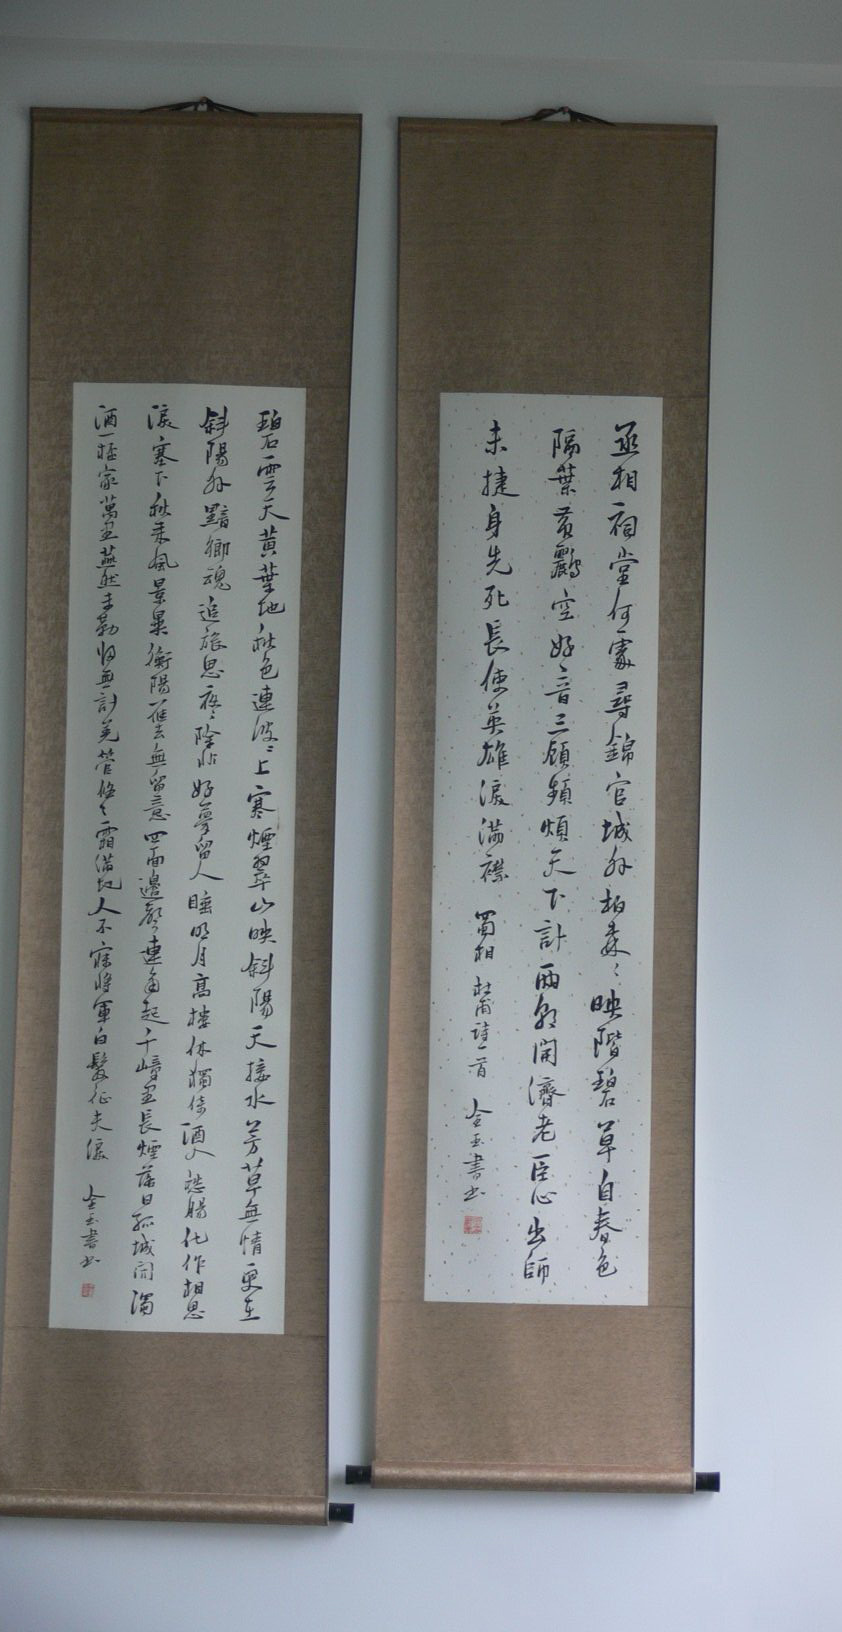 丞相祠堂何處尋錦官城外柏森〻映階碧草自春色
隔葉黃鸝空好音三顧頻煩天下計兩朝開濟老臣心出師
未捷身先死長使英雄淚滿襟
蜀相 杜甫詩一首 金玉書
碧雲天黃葉地秋色連波〻上寒煙翠山映斜陽天接水芳草無情更在
斜陽外黯鄉魂追旅思夜〻除非好夢留人睡明月高樓休獨倚酒入愁腸化作相思
淚塞下秋來風景異衡陽雁去無留意四面邊聲連角起千嶂里長煙落日孤城閉濁
酒一杯家萬里燕然未勒歸無計羌管悠〻霜滿地人不寐將軍白髮征夫淚 金玉書